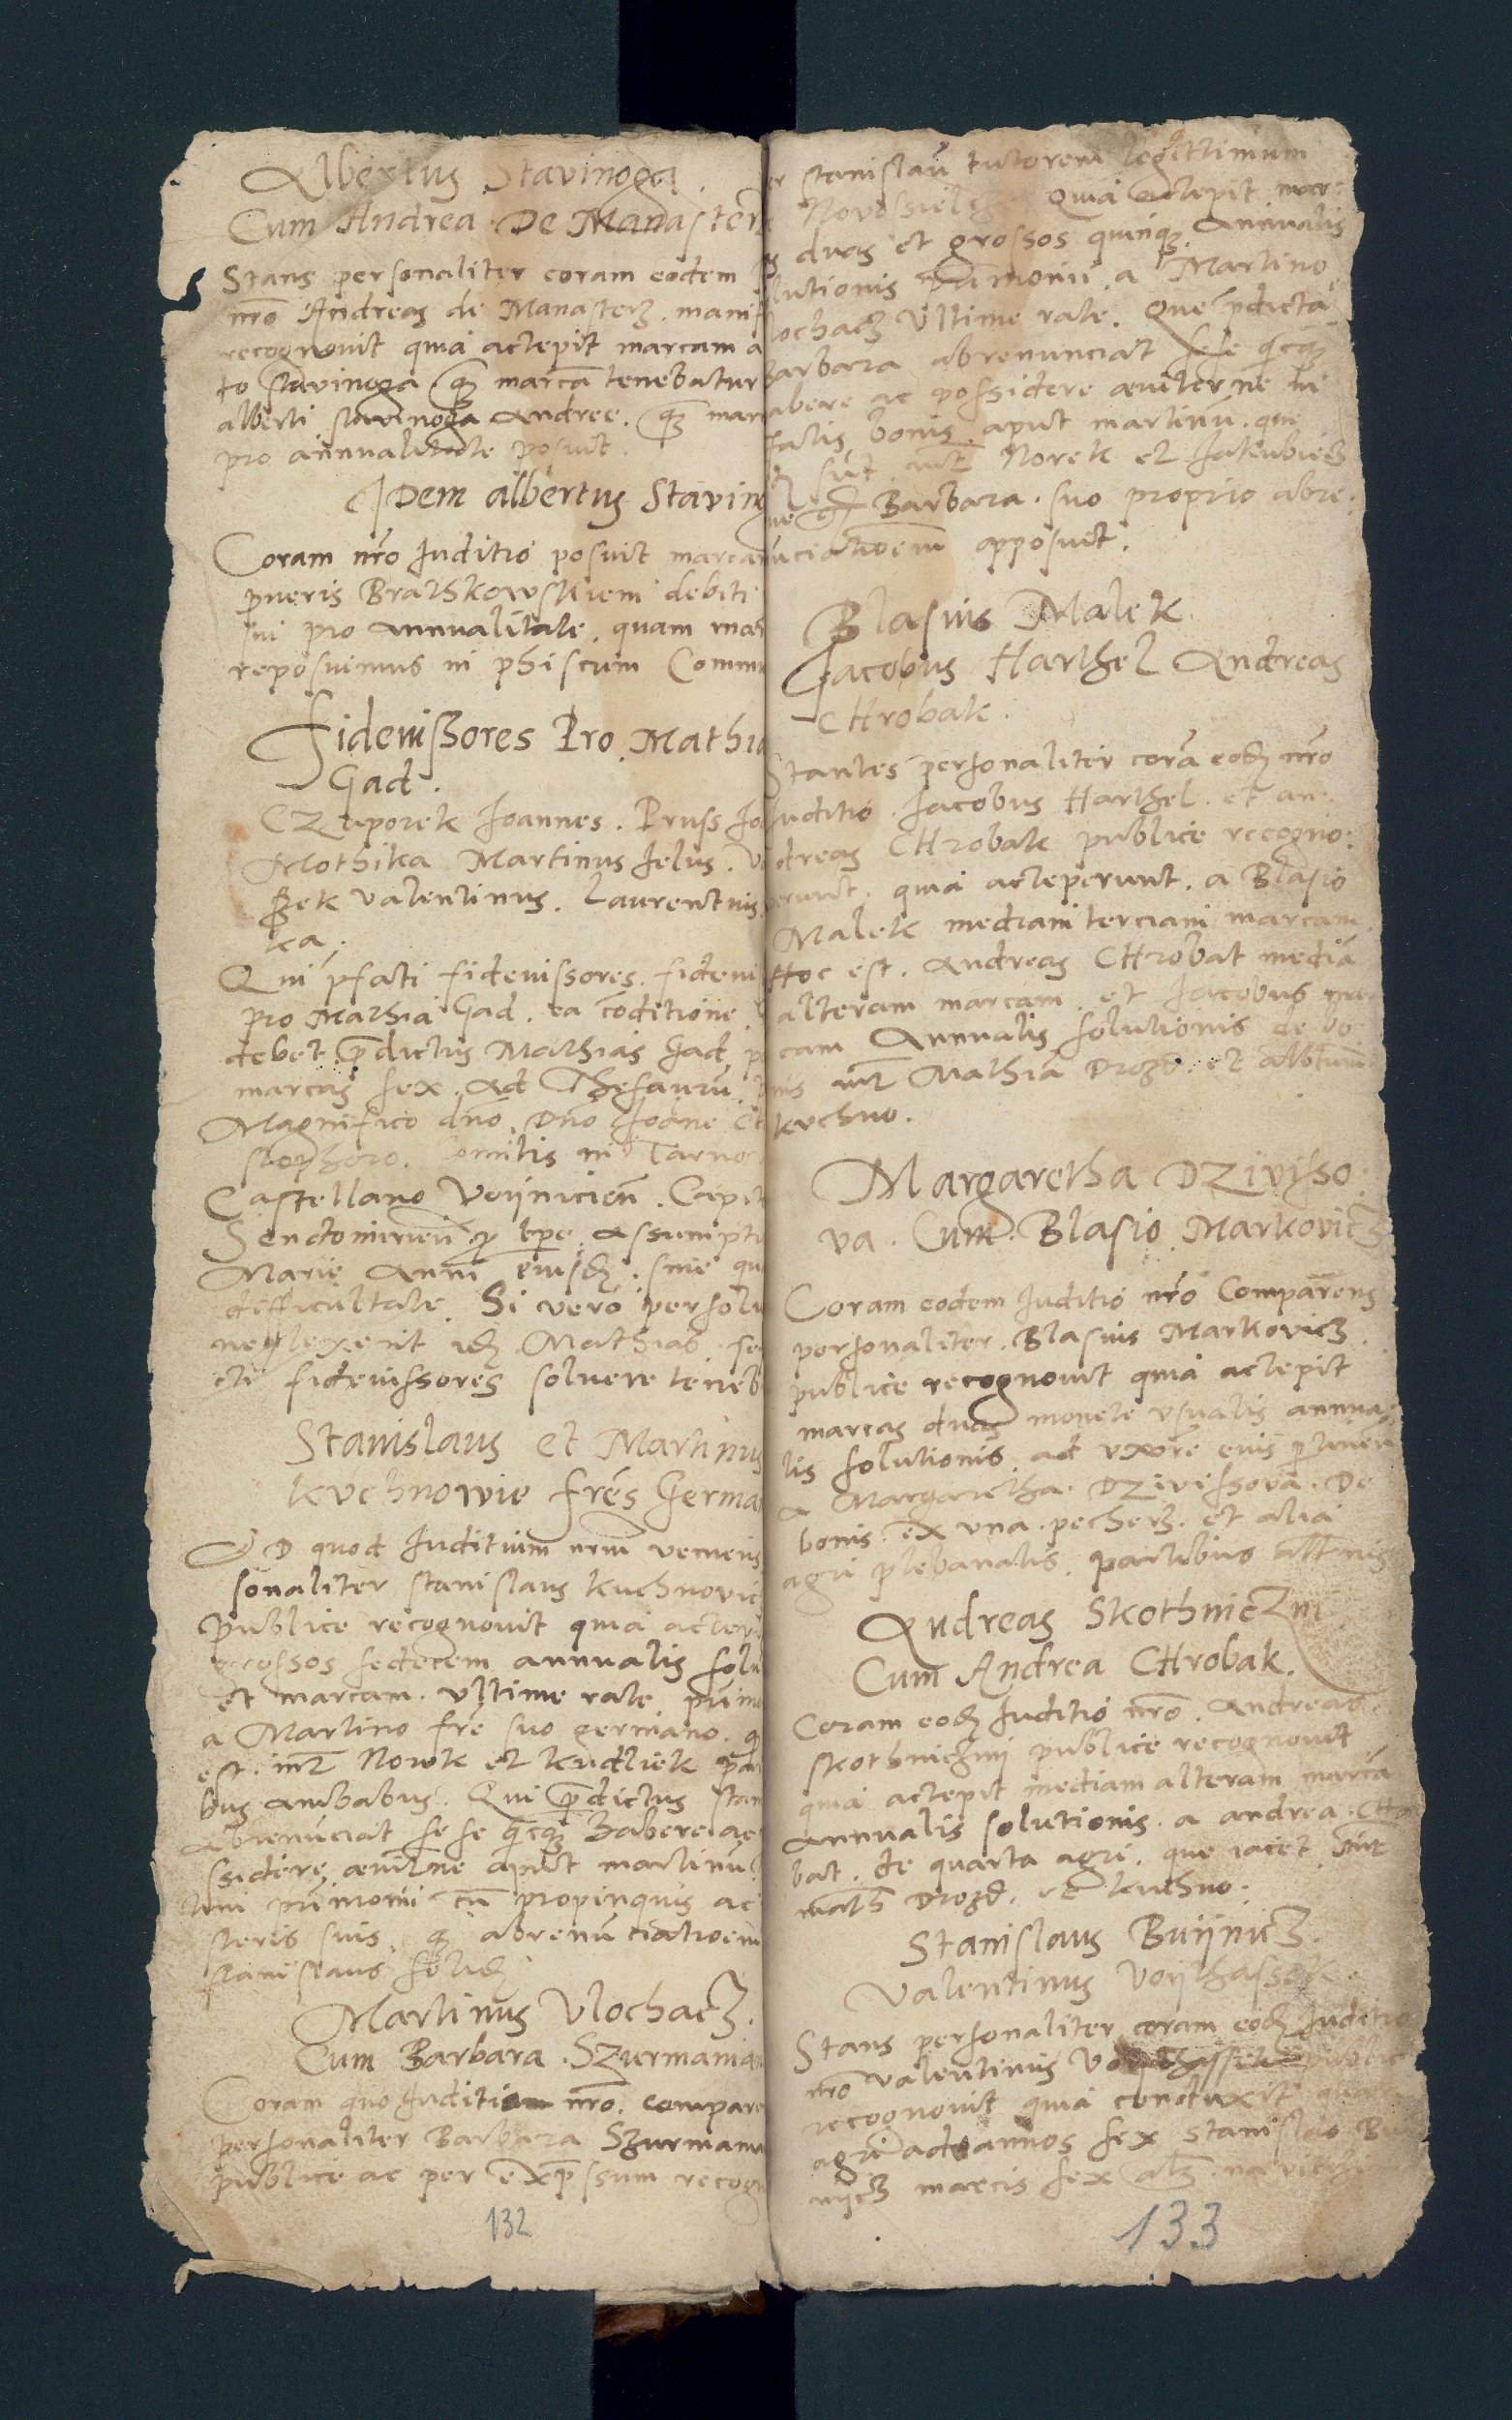 Albertus Stavinoga.
Cum Andrea De Manaster
Stans personaliter coram eodem
nr̃o Andreas de Manasterz. manif
recognovit quia actepit marcam a
to stavinoga marcã tenebatur
alberti stavinoga Andree. mar
pro annualitate posuit.
IDem albertus Stavin
Coram nr̃o Iuditio posuit marcam
pueris Brathkowskiem debiti
sui pro annualitate. quam mar
reposuimus in phiscum Commu
Fideiussores Pro Mathia
Gad.
CZuporek Joannes. Pruss Jo
Mothika Martinus Jelus. V
Valentinus. Laurentius
ka.
Qui p̃fati fideiussores. fideiu
pro Mathia Gad. ea cõditione
debet p̃dictus Mathias Gad p
marcas sex. Ad Thesaurũ.
Magnifico dño Dño Joãne C
stophoro. Comitis in Tarno
Castellano Voijnicień. Capit
Sendomirień tp̃e assumpti
Marie Anni eiusdẽ. sine qu
difficultate. Si vero persolu
neglexerit Mathias. se
cti fideiussores solvere teneb
Stanislaus et Martinus
Kuchnowie fres Germa
AD quod Iuditium nrm veniens
sonaliter stanislaus Kuchnovic
Publice recognovit quia actepi
grossos sedecem annualis solu
et marcam. Ultime rate prim
a Martino fre suo germano. q
est. int̃ Norek et Kudliek par
bus ambabus. Qui p̃dictus stan
Abrenunciat sese habere ac
ssidere aviterne aput martinũ
cũ propinquis ac
steris suis. abrenunciatioem
stanislaus
Martinus Vlochacz.
Cum Barbara Szurmania
Coram quo Iuditio nr̃o. compare
personaliter Barbara Szurmanu
publice ac per exp̃ssum recogn
132
stanislaũ tutorem legittimum
Novosielcz. Quia actepit mar:
duas et grossos quinq Annualis
lutionis a Martino
lochacz Ultime rate. Que p̃dicta
Barbara abrenunciat sese
abere ac possidere aeviterne in
fatis bonis aput martinũ. que
sũt int̃ Norek et Jakubiecz
Barbara. suo proprio abre.
unciatioem apposuit.
Blasius Malek.
Jacobus Harthel Andreas
CHrobak.
Stantes personaliter corã eodẽ nr̃o
Iuditio. Jacobus Harthel. et an
dreas CHrobak publice recogno:
verunt. quia acteperunt. a Blasio
Malek mediam terciam marcam.
Hoc est. Andreas CHrobat mediã
alteram marcam. et Jacobus mar
cam Annualis solutionis de bo
nis int̃ Mathiã Drozd. et
Kuchno.
Margaretha DZivisso
va. Cum Blasio Markovicz
Coram eodem Iuditio nr̃o Comparens
personaliter. Blasius Markovicz.
publice recognovit quia actepit
marcas duas monete usualis annua
lis solutionis. ad uxorẽ eius
a Margaretha DZivissova. De
bonis. ex una. pecherz. et alia
agri plebanalis. partibus
Andreas Skothniczni
Cum Andrea CHrobak.
Coram eodẽ Iuditio nr̃o. Andreas
skothniczni publice recognovit
quia actepit mediam alteram marcã
Annualis solutionis. a andrea CHro
bat. de quarta agri. que iacet int̃
math Drozd. et Kuchno.
Stanislaus Buijnicz.
Valentinus Voijthassek
Stans personaliter coram eodẽ Iuditio
nr̃o Valentinus
recognovit quia conduxit
agri ad annos sex Stanislao Bu
nijcz marcis sex
133